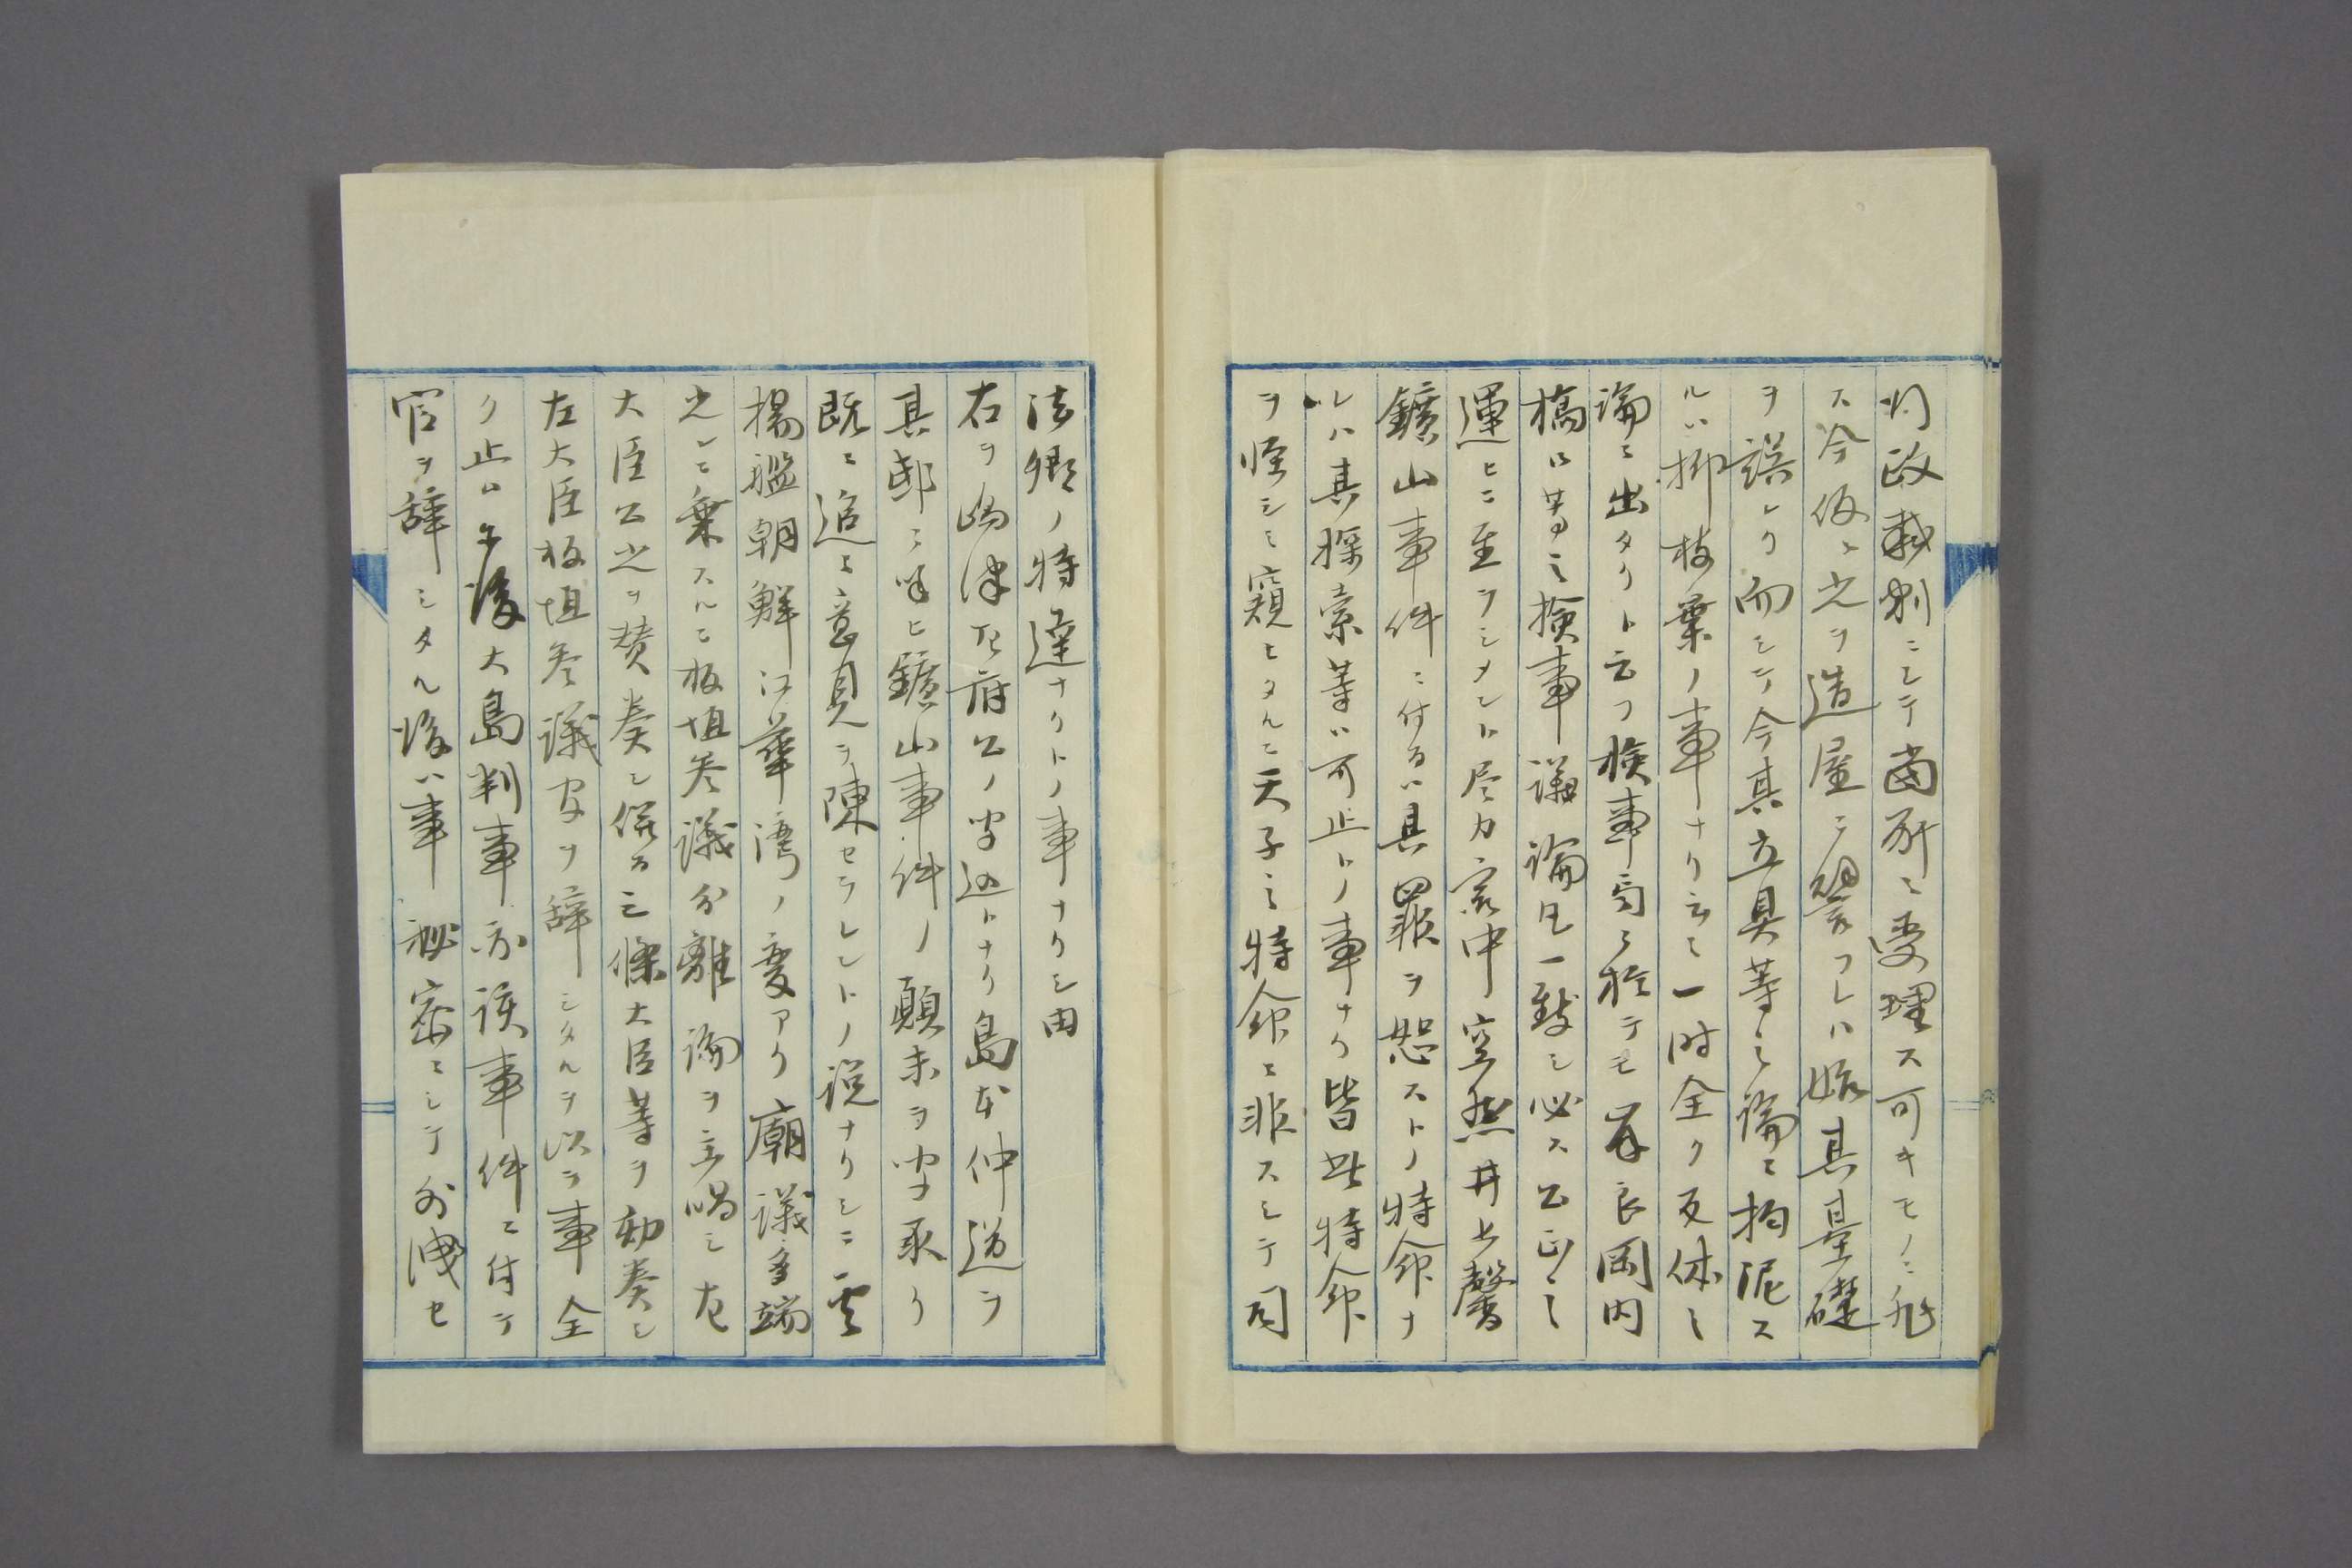 行政裁判ニシテ当所ニ受理ス可キモノニ非
ス今仮ニ之ヲ造屋ニ譬フレハ始其基礎
ヲ誤レリ而シテ今其立具等之論ニ拘泥ス
ルハ抑枝葉ノ事ナリ云々一時全ク反休之
論ニ出タリト云フ検事局ニ於テモ岸良岡内
橋口等之検事議論凡一致シ必ス公正之
運ヒニ至ラシメント尽力ノ央中突然井上馨
鑛山事件ニ付るハ其罪ヲ恕ストノ特命ナ
レハ其探索等ハ可止トノ事ナリ皆此特命
ヲ怪シミ窺ヒタルニ天子之特命ニ非スシテ司
法卿ノ特達ナリトノ事ナリシ由
右ヲ嶋津左府公ノ聞込トナリ島本仲道ヲ
其邸ニ呼ヒ鑛山事件ノ顛末ヲ聞取リ
既ニ追々意見ヲ陳セラレントノ説ナリシニ雲
揚艦朝鮮江華湾ノ変アリ廟議多端
之レニ棄スルニ板垣参議分離論ヲ主唱シ左
大臣公之ヲ賛奏シ併る三條大臣等ヲ劾奏シ
左大臣板垣参議官ヲ辞シタルヲ以テ事全
ク止ム午後大島判事亦該事件ニ付テ
官ヲ辞シタル後ハ事秘密ニシテ外洩セ